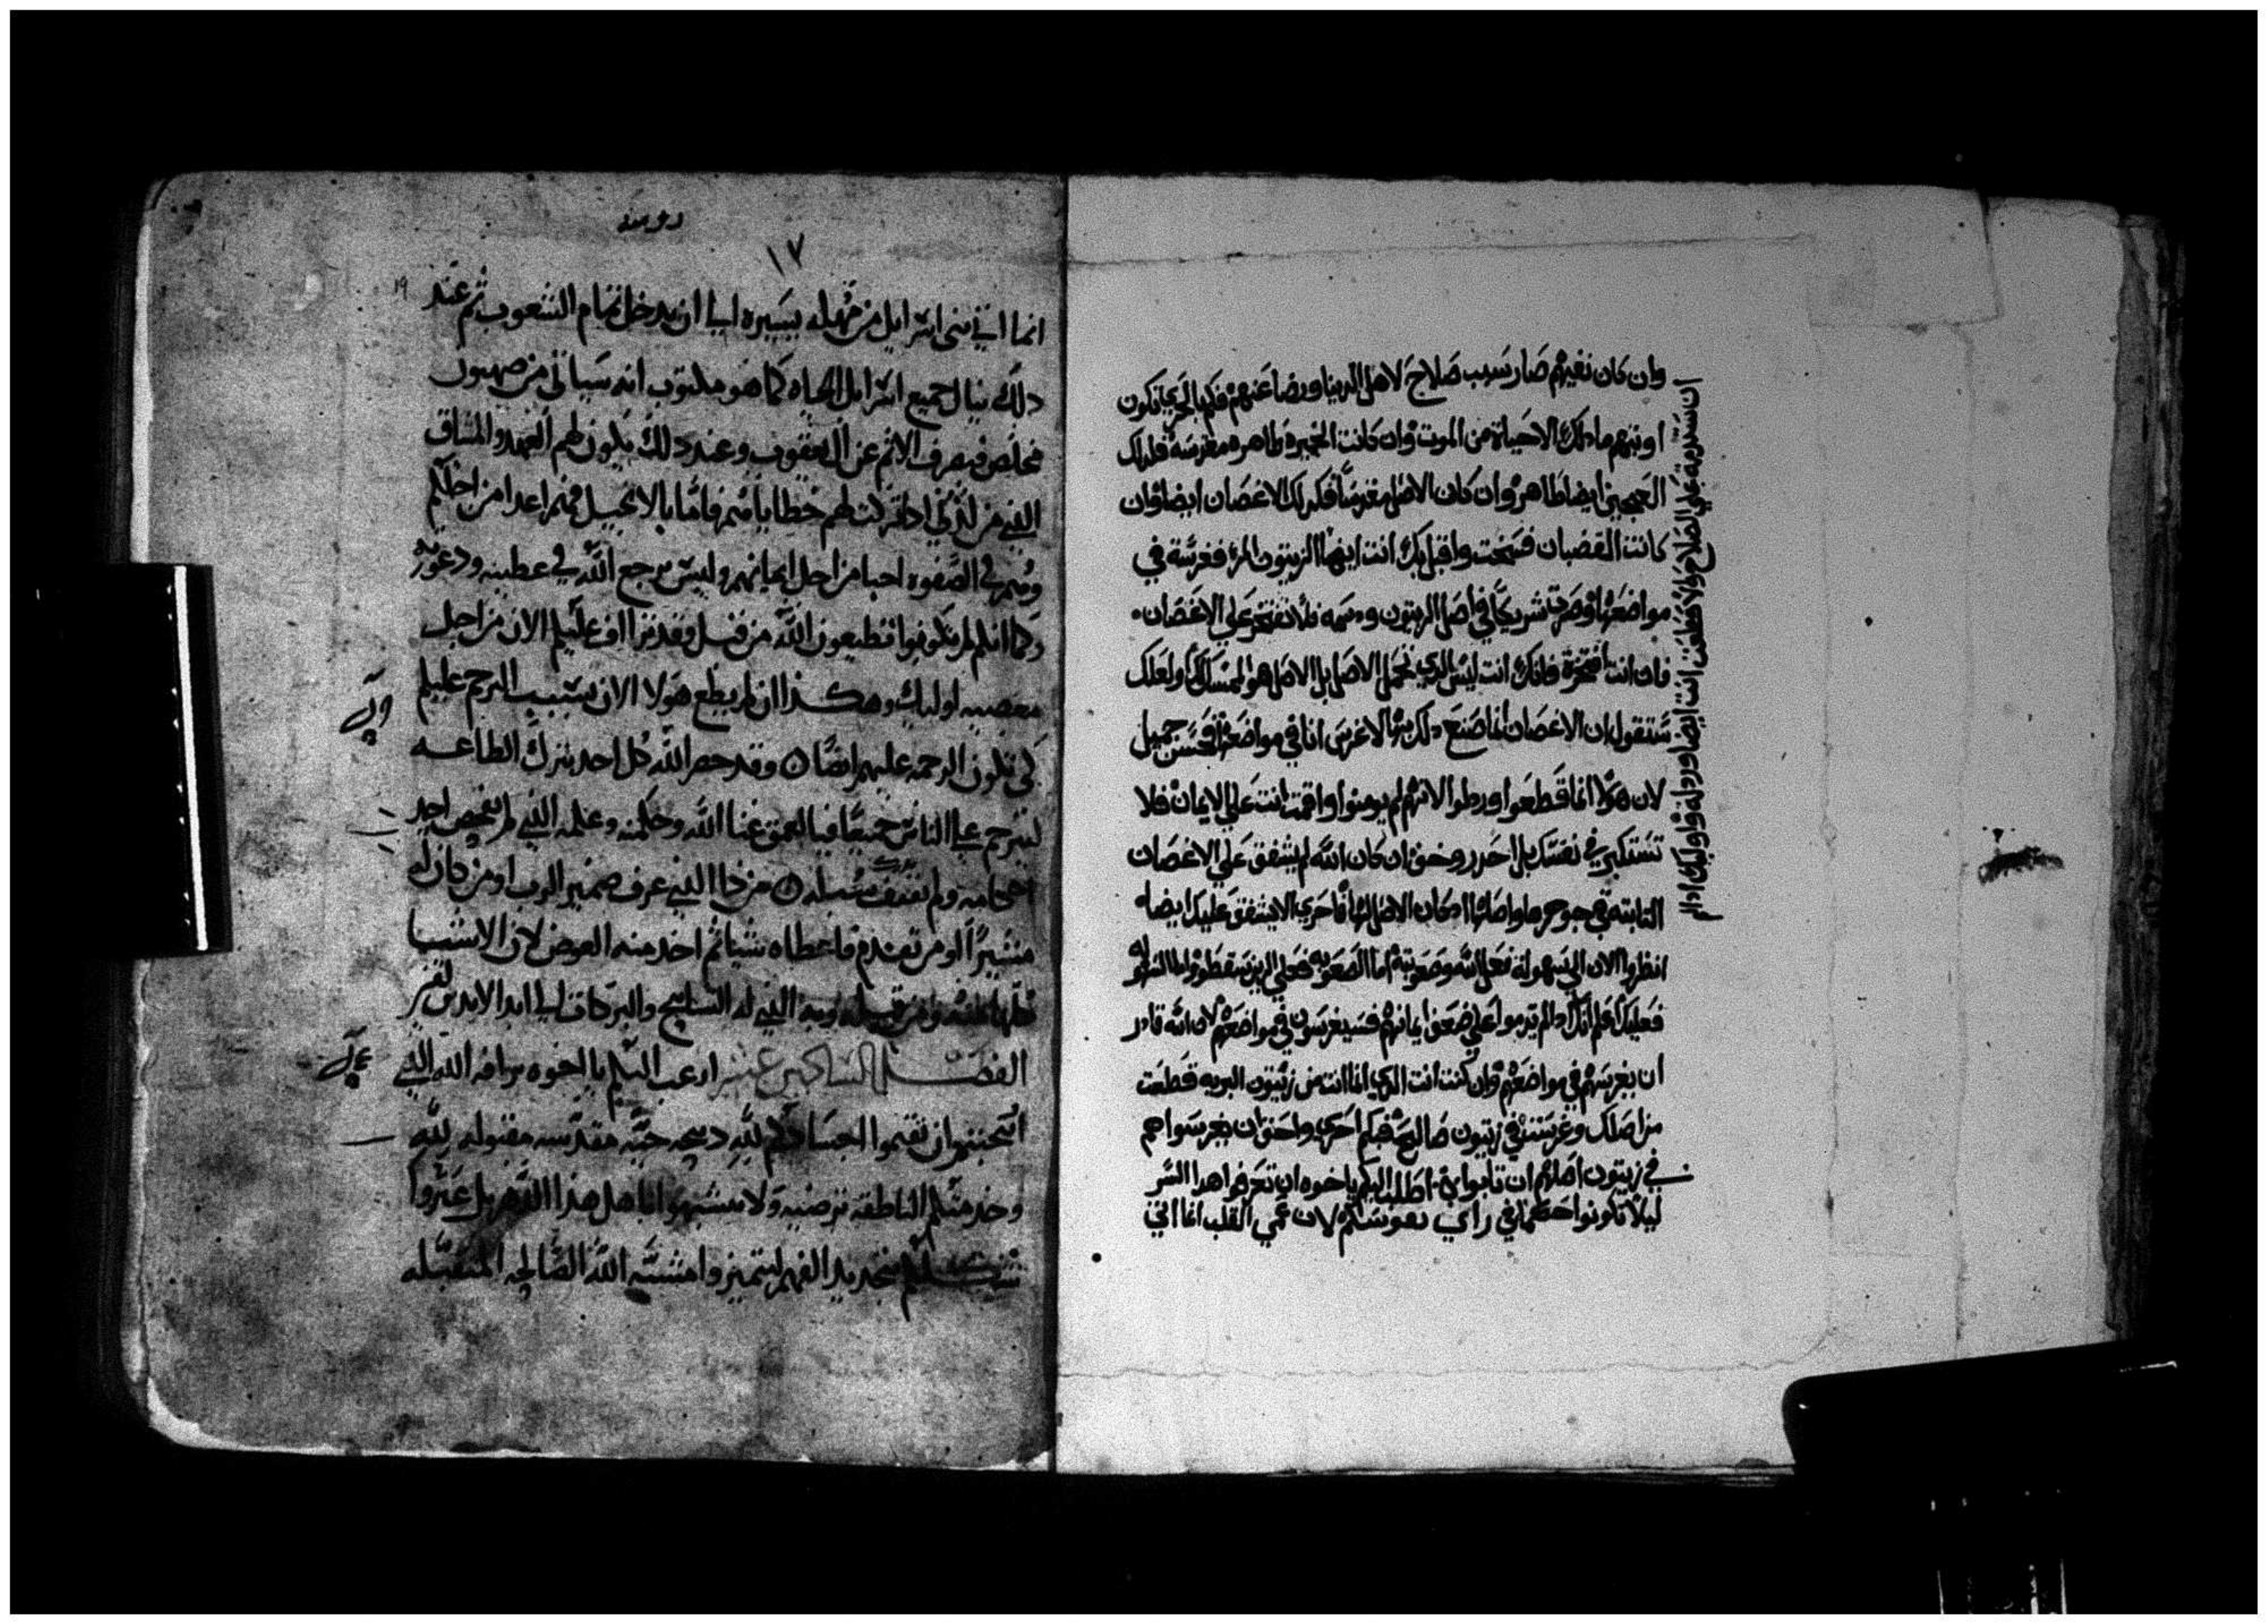 وان كان نفيهم صار سبب صلاح لاهل الدنيا ورضا عنهم فكم بالحري تكون
اوبتهم ما دلك الا حياة من الموت وان كانت الخميره طاهره مغرسة فلدلك
العجين ايضا طاهر وان كان الاصل مقدسا فكدلك الاغصان ايضا وان
كانت القضبان فسخت واقبل بك انت ايها الزيتون المر فغرسة في
مواضعها وصرت شريكا في اصل الزيتون ودسمه فلا تفتخر علي الاغصان
فان انت افتخرة فانك انت ليس الدي تحمل الاصل بل الاصل هو الممسك لك ولعلك
ستقول ان الاغصان انما صنع دلك بها لاغرس انا في مواضعها فحسن جميل
لان هولا انما قطعوا وردلوا لانهم لم يومنوا واقمت انت علي الايمان فلا
تستكبر في نفسك بل احدر وخف ان كان الله لم يشفق علي الاغصان
الثابته في جوهرها واصلها فاحري الا يشفق عليك ايضا
انظروا الان الي سهولة فعل الله وصعوبته اما الصعوبه فعلي الدين سقطوا واما السهوله
فعليك واعلم انك ادا لم تدموا علي ضعف ايمانهم فسيغرسون في مواضعهم لان الله قادر
ان يغرسهم في مواضعهم وان كنت انت الدي انما انت من زيتون البريه قطعت
من اصلك وغرست في زيتون صالحة فكم احري واحق ان يغرسوا هم
في زيتون اصلهم ان تابوا اطلب اليكم يا اخوه ان تعرفوا هدا السر
ليلا تكونوا حكما في راي نفوسكم لان عمي القلب انما اتي
ان ستديمة علي الصلاح والا قطعت انت ايضا وردلة واوليك ادا لم
رومية
١٧
١٩
انما اتي بني اسرايل من مهله يسيره الي ان يدخل تمام الشعوب ثم عند
دلك ينال جميع اسرايل الحياه كما هو مكتوب انه سياتي من صهيون
مخلص فيصرف الاثم عن ال يعقوب وعند دلك يكون لهم العهد والميثاق
الدي من لدني ادا غفرت لهم خطاياهم فاما بالانجيل فهم اعدا من اجلكم
وهم في الصفوه احبا من اجل ابايهم وليس يرجع الله في عطيته ودعوته
وكما انكم لم تكونوا تطيعون الله من قبل وقد تراف عليكم الان من اجل
معصية اوليك وهكذا ان لم يطع هولا الان بسبب الرحم عليكم
كي تكون الرحمه عليهم ايضا وقد حصر الله كل احد بترك الطاعه
ليترحم علي الناس جميعا فيا لعمق غنا الله وحكمته وعلمه الذي لم يفحص احد
احكامه ولم تقتف سبله من ذا الذي عرف ضمير الرب او من كان له
مشيرا او من تقدم فاعطاه شيا ثم اخد منه العوض لان الاشيا
كلها منه ومن قبله وبه الذي له التسابيح والبركات الي ابد الابدين امين
الفصل السادس عشر ارغب اليكم يا اخوه برافه الله الذي
اسحبتم ان تقيموا اجسادكم لله دبيحه حيه مقدسه مقبوله لله
وخدمتكم الناطقه ترضيه ولا تتشبهوا باهل هذا الدهر بل غيروا
شكلكم بتجديد الفهم لتميزوا مشية الله الصالحه المتقبله